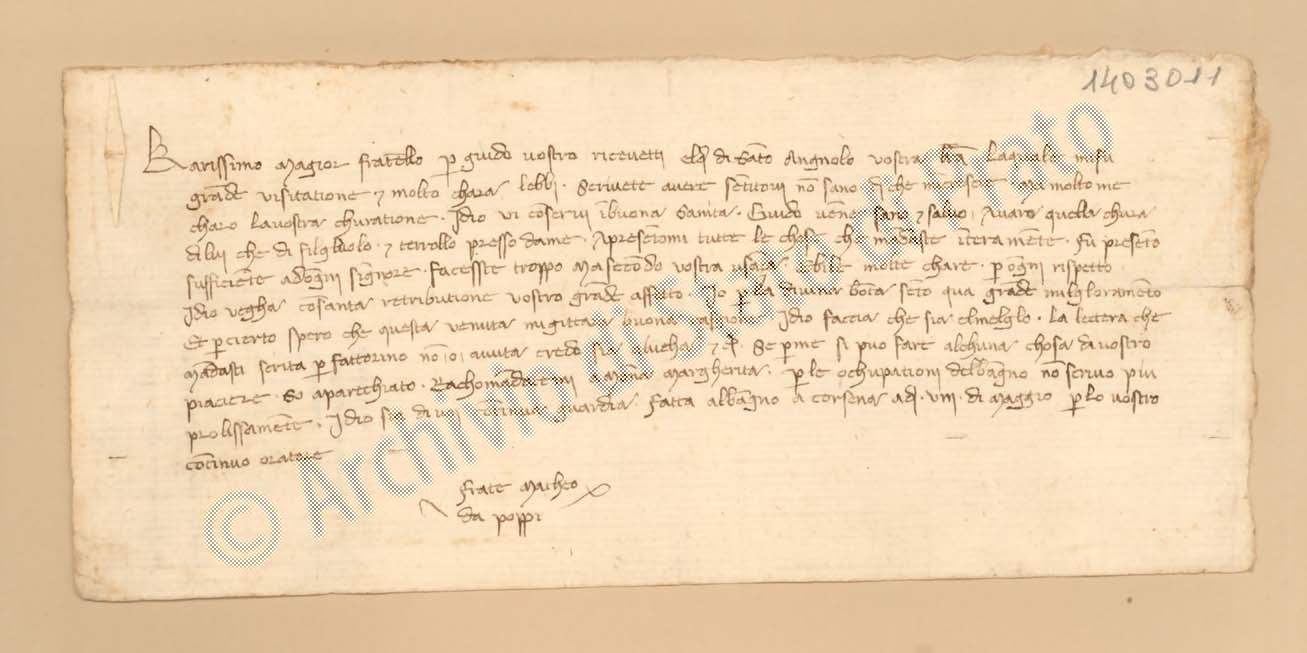 1403011
Karissimo Magior fratello p guido vostro ricevetti el di Santo Angnolo vostra lra Laquale mi fu
grade visitatione & molto chara lebbi. Scrivete avere sentitovi no sano di che mincresce. Ma molto me
charo La vostra churatione. Idio vi coservi i buona Sanita. Guido vene sano & salvo, Avaro quella chura
di lui che di filgliolo. & terrollo presso dame. Apresetomi tutte le chose che madaste iteramete. Fu preseto
sufficiete adogni signore. facesste troppo Ma secodo vostra usaça. ebile molte chare. p ogni rispetto.
Idio vegha co santa retributione vostro grade affetto. Io p la divina bota seto qua grade milgloramento
Et p cierto spero che questa venuta mi gittara buona ragione. Idio faccia che sia el melglo. La lettera che
Madasti scrita p fattorino no.o. avuta credo sia a &. Se p me si puo fare alchuna chosa di vostro
piaciere. So aparechiato. Rachomadatemi a Mona Margherita. p le ochupationi del bagno no scrivo piu
prolissamete. Idio sia di voi cotinua guardia. fatta al bagno a corsena adi. viii. di Maggio p lo vostro
cotinuo oratore
frate Matheo
da poppi
© Archivio di Stato di Prato